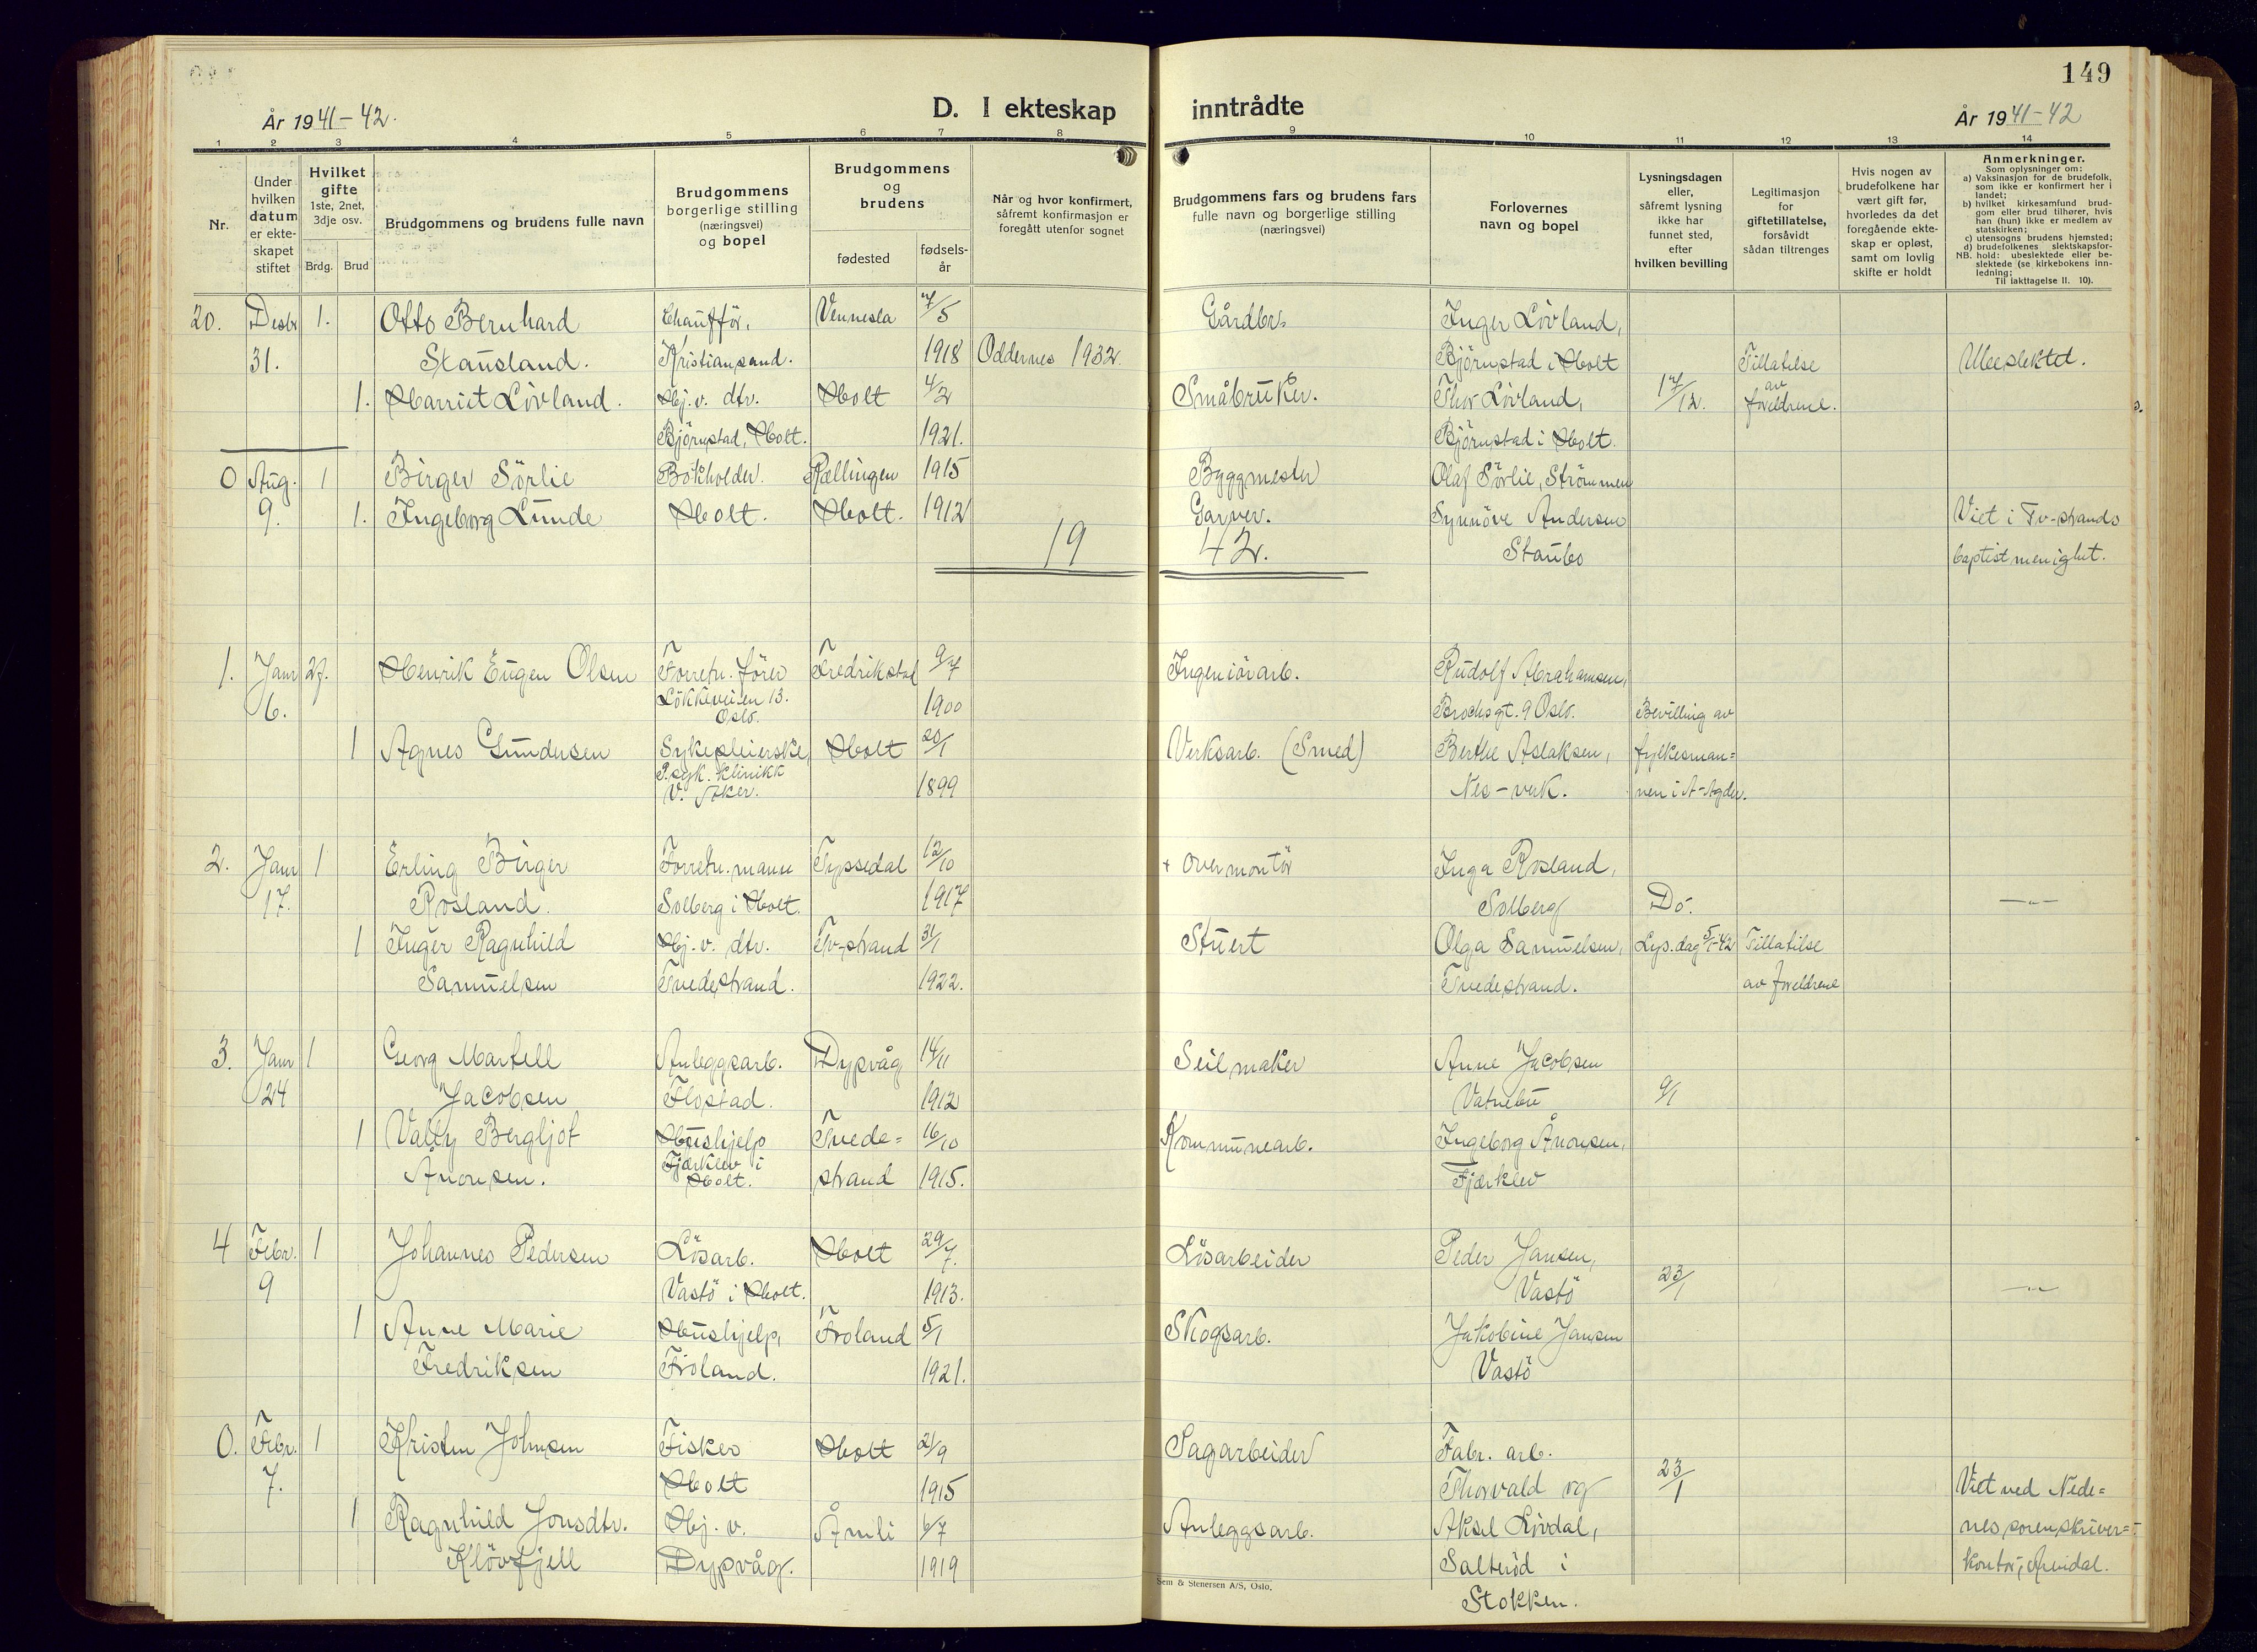 149
År 1941-42.
D. I ekteskap inntrådte
År 1941-42
1 2 3 4 5 6 7 8 9 10 11 12 13 14
Nr.
Under hvilken datum er ekteskapet stiftet
Hvilket gifte 1ste, 2net, 3dje osv.
Brdg.
Brud
Brudgommens og brudens fulle navn
Brudgommens borgerlige stilling (næringsvei) og bopel
Brudgommens og brudens
fødested
fødselsår
Når og hvor konfirmert, såfremt konfirmasjon er foregått utenfor sognet
Brudgommens fars og brudens fars fulle navn og borgerlige stilling (næringsvei)
Forlovernes navn og bopel
Lysningsdagen eller, såfremt lysning ikke har funnet sted, efter hvilken bevilling
Legitimasjon for giftetillatelse, forsåvidt sådan tiltrenges
Hvis nogen av brudefolkene har vært gift før, hvorledes da det foregående ekteskap er opløst, samt om lovlig skifte er holdt
Anmerkninger.
Som oplysninger om:
a) Vaksinasjon for de brudefolk, som ikke er konfirmert her i landet;
b) hvilket kirkesamfund brudgom eller brud tilhører, hvis han (hun) ikke er medlem av statskirken;
c) utensogns brudens hjemsted;
d) brudefolkenes slektskapsforhold: ubeslektede eller beslektede (se kirkebokens innledning;
NB.
Til iakttagelse II. 10).
20. Desbr 1. Otto Bernhard Chauffør, Vennesla 7/5 Gårdbr. Inger Lövland,
31. Skaŭsland. Kristiansand. 1918 Oddernes 1932 Björnstad i Holt Tillatelse Ubeslektet.
1. Harriet Lövland. Hj.v. dtr. Holt 4/2 Småbrŭker. Thor Lövland, 17/12. av foreldrene.
Björnstad, Holt. 1921. Björnstad i Holt.
0 Aŭg. 1 Birger Sörlie Bokholder. Rællingen 1915 Byggmester Olaf Sörlie, Strömmen
9. 1. Ingeborg Lŭnde Holt. Holt. 1912 Garver. Synnöve Andersen Viet i Tv-strands
19 42. Staŭbo baptistmenighet.
1. Janr 2g. Henrik Eŭgen Olsen Forretn. förer Fredrikstad 9/7 Ingeniörarb. Rŭdolf Abrahamsen,
6. Lökkeveien 13. Oslo. 1900 Brochsgt. 9 Oslo. Bevilling av
1 Agnes Gŭndersen Sykepleierske, Holt 20/1 Verksarb. (Smed) Berthe Aslaksen, fylkesman=
Psyk. Klinikk V. Aker. 1899 Nes-verk. nen i A-Agder.
2. Janr 1 Erling Birger Forretn. mann Tyssedal 12/10 + Overmontör Inga Rosland,
17. Rosland. Solberg i Holt. 1917 Solberg Do. —"—
1 Inger Ragnhild Hj. v. dtr. Tv-strand 31/1 Stŭert Olga Samŭelsen, Lys.dag 5/1-42 Tillatelse
Samŭelsen Tvedestrand. 1922. Tvedestrand. av foreldrene
3. Janr 1 Georg Martell Anleggsarb. Dypvåg 14/11 Seilmaker Anne Jacobsen
24 Jacobsen Flostad. 1912 Vatnebŭ 9/1
1 Vally Bergljot Hŭshjelp Tvede= 16/10 Kommŭnearb. Ingeborg Ånonsen,
Ånonsen. Fjærklev i Holt. strand 1915. Fjærklev
4 Febr. 1 Johannes Pedersen Lösarb. Holt 29/7. Lösarbeider Peder Jansen,
9 Vastö i Holt. 1913. Vastö 23/1 —"—
1 Anne Marie Hŭshjelp, Froland 5/1 Skogsarb. Jakobine Jansen
Fredriksen Froland. 1921. Vastö
0. Febr. 1 Kristen Johnsen Fisker Holt 21/9 Sagarbeider Fabr. arb.
7. Holt 1915 Thorvald og 23/1 Viet ved Nede=
1 Ragnhild Jonsdtr. Hj. v. Åmli 6/7 Anleggsarb. Aksel Lövdal, nes sorenskriver=
Klövfjell Dypvåg. 1919 Salteröd i kontor, Arendal.
Stokken.
Sem & Stenersen A/S, Oslo.